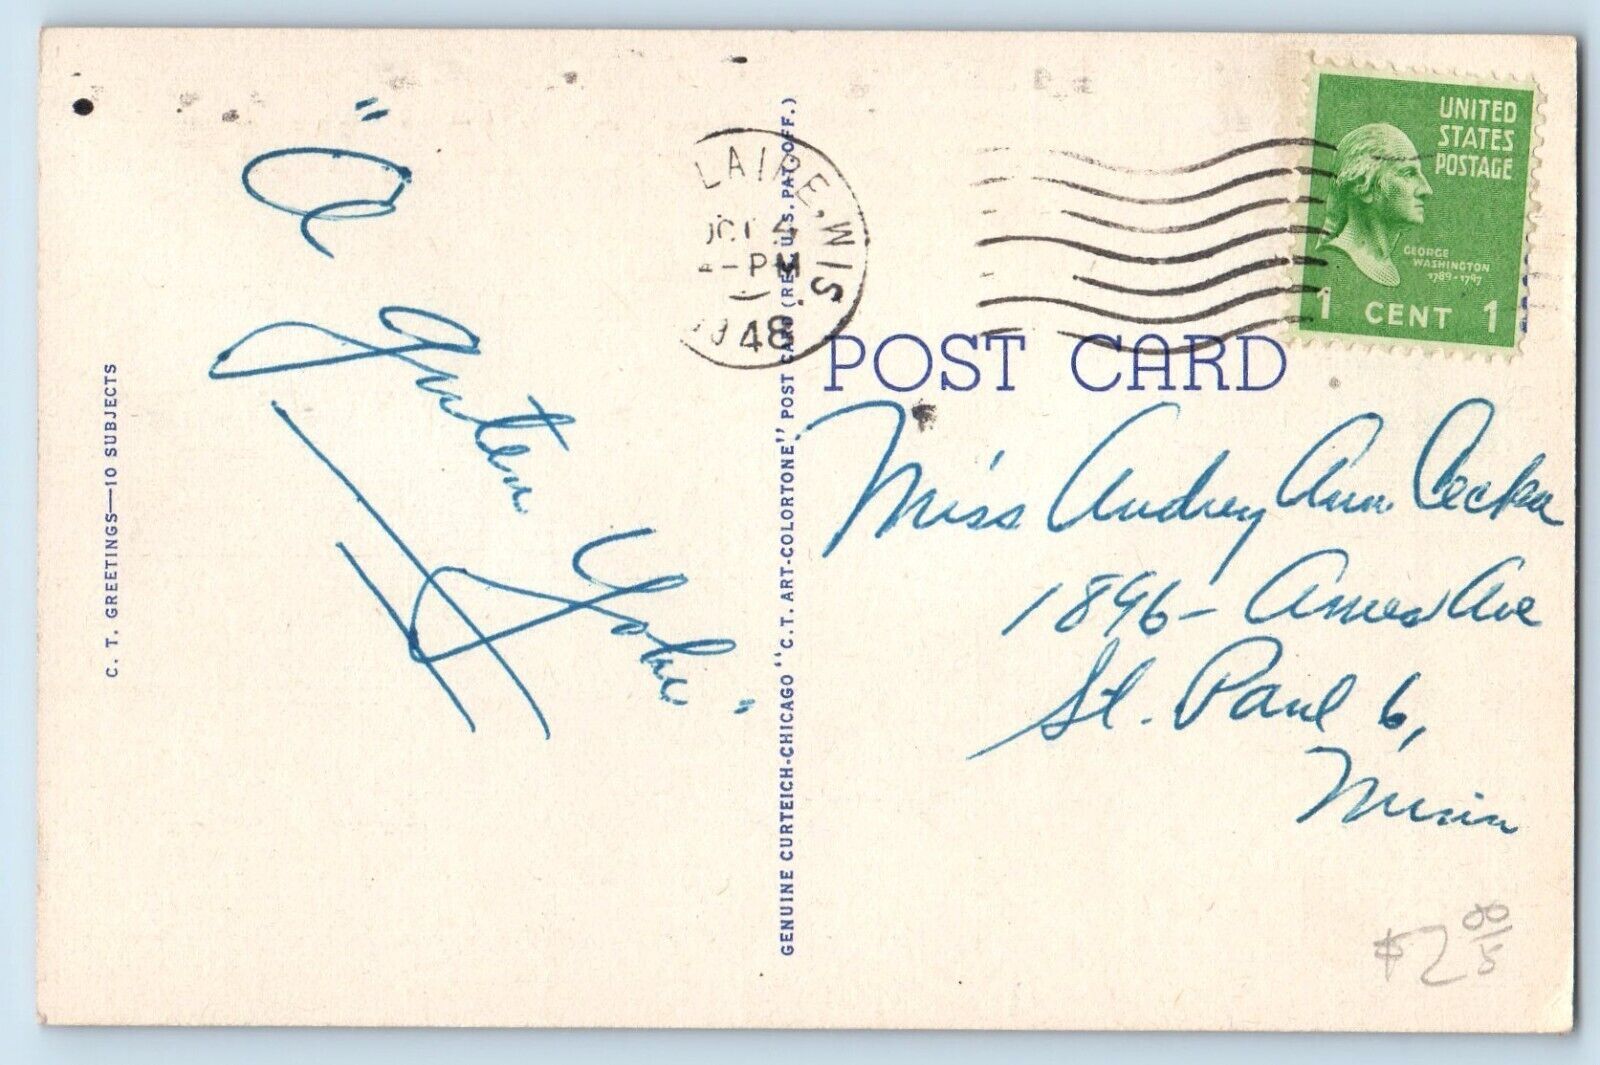 C. T. GREETINGS—10 SUBJECTS
"A
GENUINE CURTEICH-CHICAGO "C. T. ART-COLORTONE" POST CARD (REG. U.S. PAT. OFF.)
LAIRE, WIS.
OCT 4
-PM
1948
UNITED
STATES
POSTAGE
GEORGE
WASHINGTON
1789-1797
1 CENT 1
POST CARD
Miss Audrey Ann
1896- Ames Ave
St. Paul 6,
Minn
$2 00
5